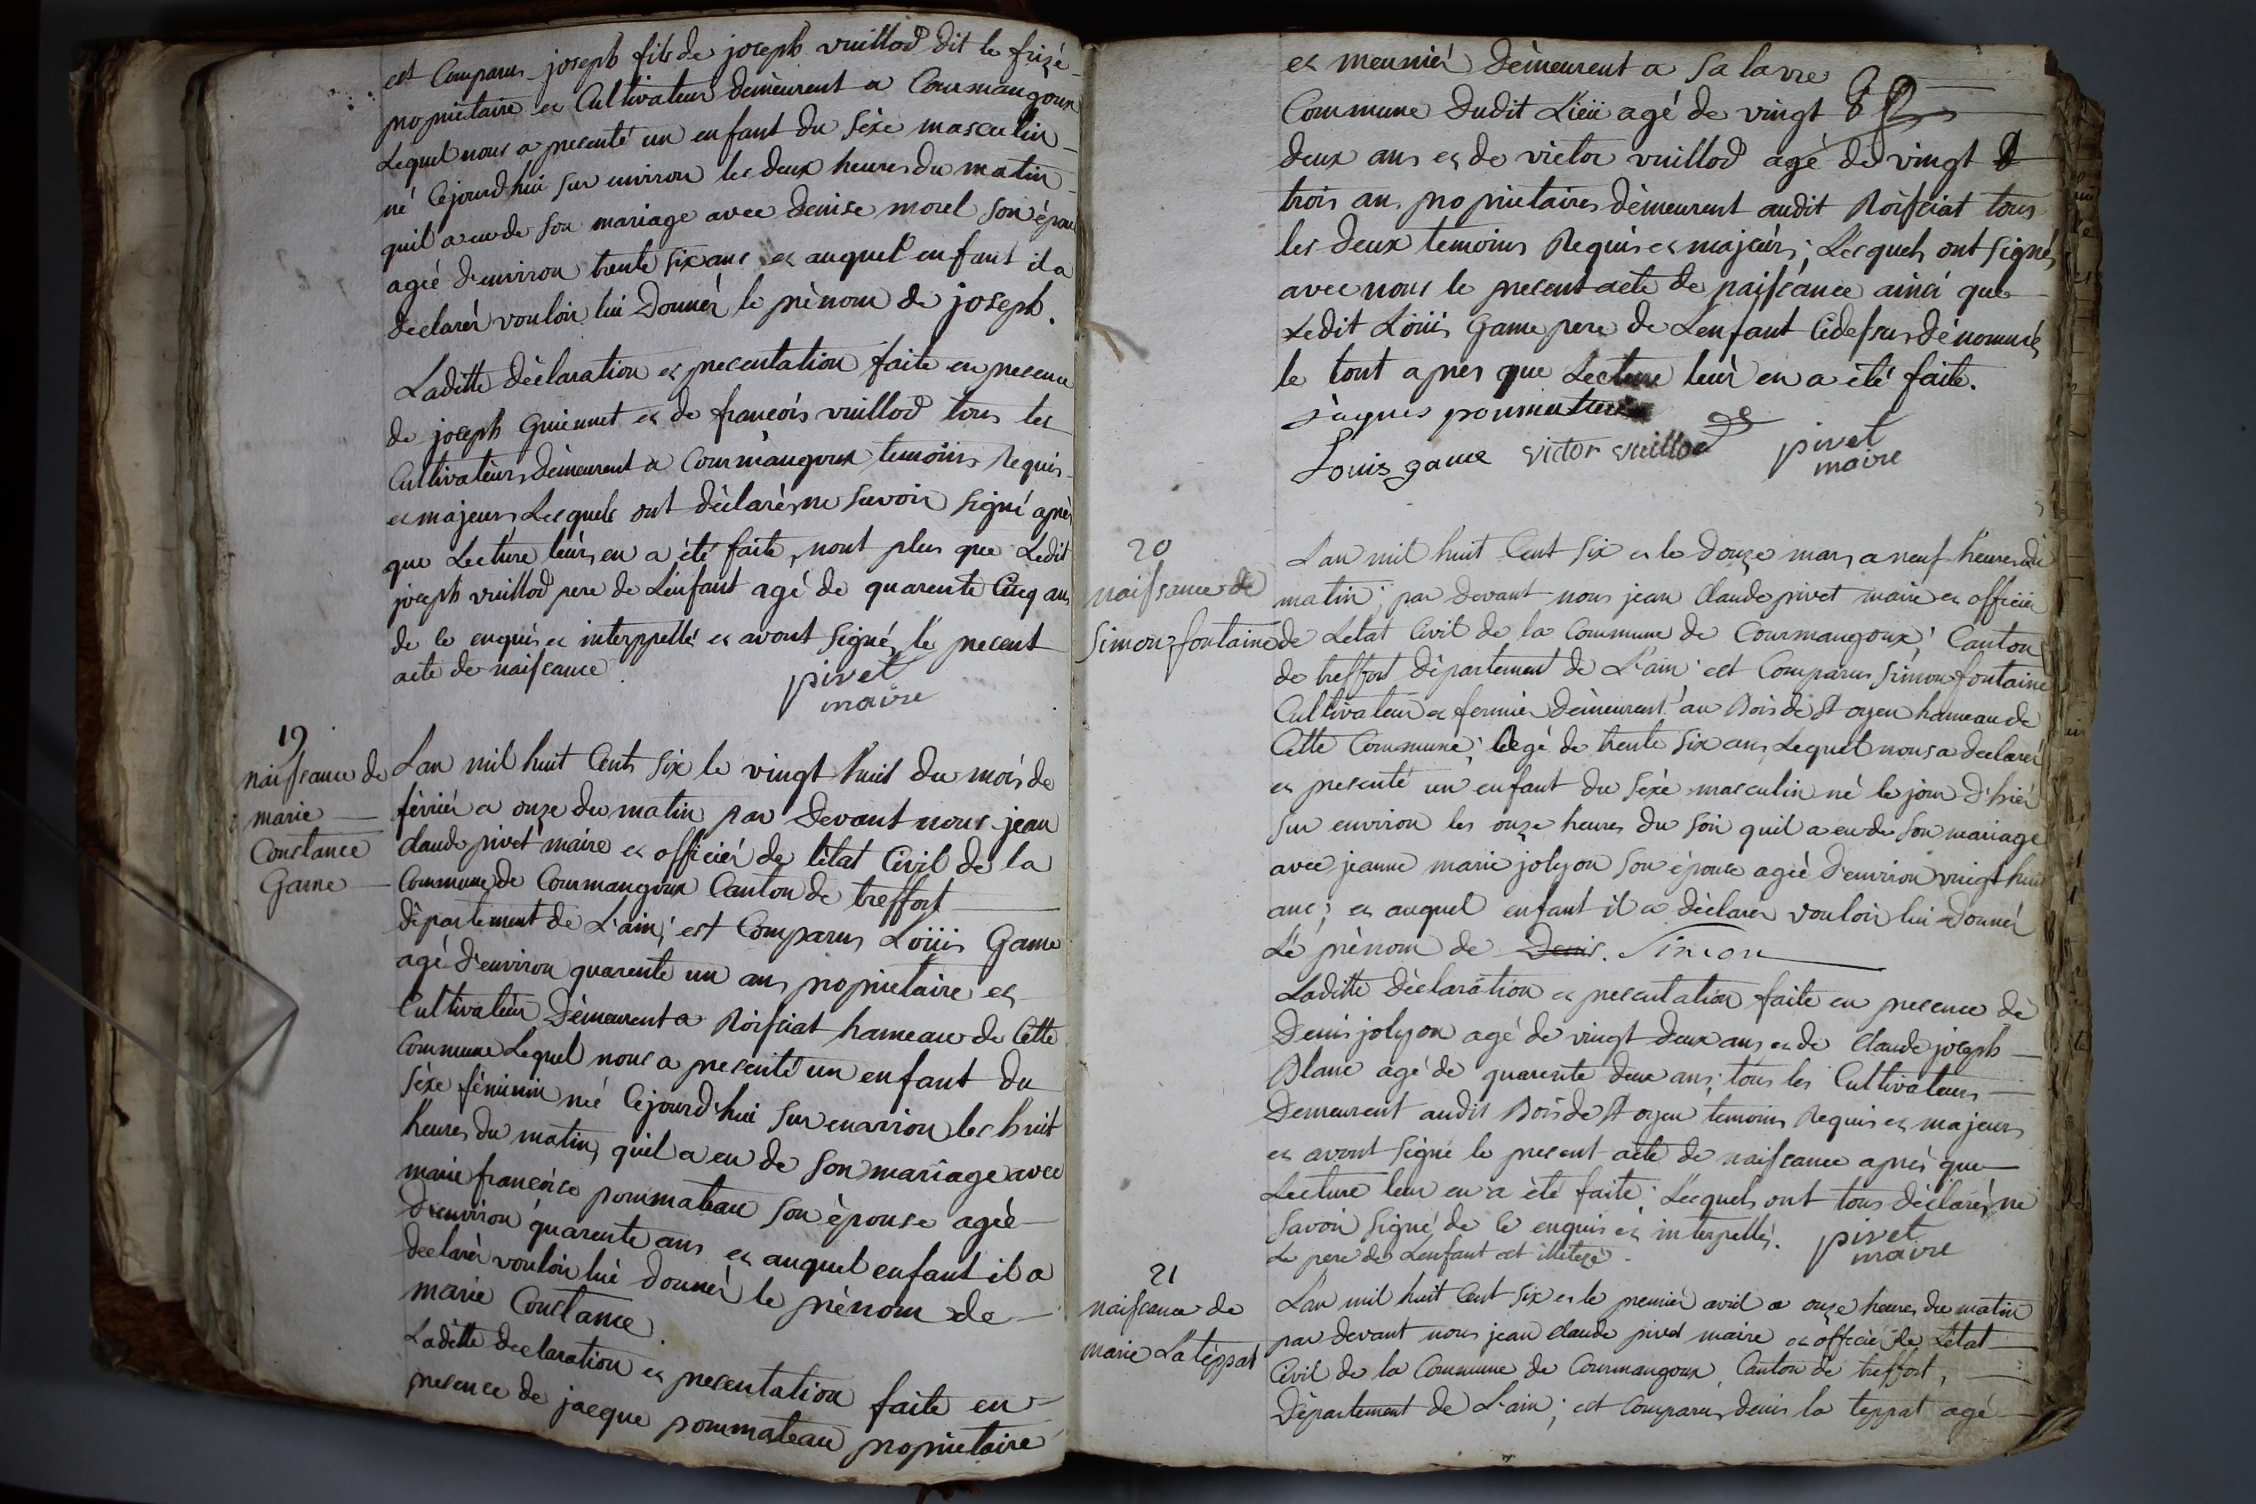 est Comparus joseph fils de joseph vuillod dit le frizé
propriétaire et Cultivateur demeurent a Courmangoux
Lequel nous a presenté un enfant du sèxe masculin
né Cejourd'hui sur environ les deux heures du matin
quil a eu de son mariage avec denise morel son épouse
agée d'environ trente six ans et auquel enfant il a
declarér vouloir lui Donnér le prènom de joseph.
Laditte dèclaration et presentation faite en presence
de joseph Guiennet et de françois vuillod tous les
Cultivateurs demeurent a Courmangoux temoins Requis
et majeurs Lesquels ont dèclarès ne savoir signé après
que Lecture leurs en a été faite, nont plus que Ledit
joseph vuillod pere de L'enfant agé de quarente Cinq ans
de ce enquis et interppellé et avont signé le present
acte de naissance.
pivet
maire
19
naissance de
marie
Constance
Game
Lan mil huit Cents six le vingt huit du mois de
fèvriér a onze du matin par Devant nous jean
claude pivet maire et officiér de létat Civil de la
Commune de Courmangoux Canton de treffort
dèpartement de L'ain; est Comparus Loüis Game
agé d'environ quarente un ans propriétaire et
Cultivateur Dèmeurent a Roissiat hameau de Cette
Commune Lequel nous a presenté un enfant du
sèxe féminin né Cejourd'hui sur environ les huit
heures du matin, quil a eu de son mariage avec
marie françoise pommateau son èpouse agèe
d'environ quarente ans et auquel enfant il a
declarèr vouloir lui donnér le prènom de
marie Constance.
Laditte declaration et presentation faite en
presence de jacque pommateau propriétaire
et meuniér dèmeurent a sa lavre
Commune Dudit Lieü agé de vingt
deux ans et de victor vuillod agé de vingt
trois ans propriétaires dèmeurent audit Roissiat tous
les deux temoins Requis et majeurs; Lesquels ont signés
avec nous le present acte de naissance ainci que
Ledit Loüis Game pere de L'enfant Cidessus dénommés
le tout apres que Lecture leur en a été faite.
jaques
Louis game victor vuillod pivet
maire
20
naissance de
simon fontaine
Lan mil huit Cent six et le douze mars a neuf heures du
matin; par devant nous jean Claude pivet maire et officier
de Letat Civil de la Commune de Courmangoux; Canton
de treffort dèpartement de L'ain; est Comparus simon fontaine
Cultivateur et fermier Dèmeurent au Bois de St oyen hameau de
Cette Commune; Agé de trente six ans Lequel nous a declarér
et presenté un enfant du sèxe masculin né le jour d'hiér
sur environ les onze heures du soir quil a eu de son mariage
avec jeanne marie jolyon son épouse agée d'environ vingt huit
ans; et auquel enfant il a dèclarer vouloir lui donnér
Lé prènom de Denis. Simon
Laditte dèclaration et presentation faite en presence de
Denis jolyon agé de vingt deux ans et de Claude joseph
Blanc agé de quarente deux ans; tous les Cultivateurs
Demeurent audit Bois de St oyen temoins Requis et majeurs
et avont signé le present acte de naissance après que
Lecture leur en a été faite; Lesquels ont tous dèclarés ne
savoir signé de ce enquis et interpellés.
Le pere de Lenfant est illiteré.
pivet
maire
21
naissance de
marie Latèppat
L'an mil huit Cent six et le premiér avril a onze heures du matin
par devant nous jean claude pivet maire et officiér de L'etat
Civil de la Commune de Courmangoux, Canton de treffort,
Dèpartement de L'ain; est Comparus denis la teppat agé